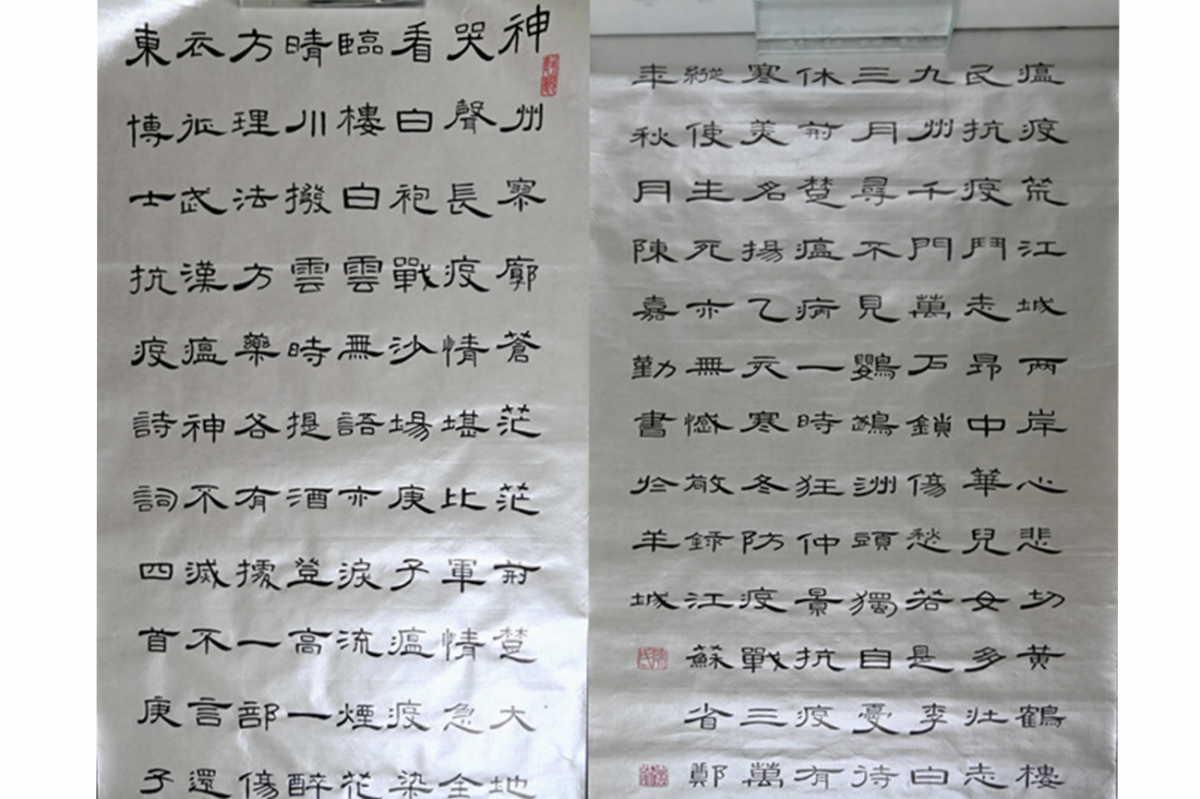 神州寥廓蒼茫茫荆楚大地瘟疫荒江城两岸心悲切黄鶴樓
哭聲長疫情堪比軍情急全民抗疫鬥志昂中華兒女多壯志
看白袍戰沙場庚子瘟疫染九州千門萬戶鎖傷愁若是李白
臨樓白雲無語亦淚流煙花三月尋不見鸚鵡洲頭獨自憂待
晴川撥雲時提酒登高一醉休荆楚瘟病一時狂仲景抗疫有
方理法方藥各有據一部傷寒美名揚乙亥寒冬防疫戰三萬
衣征武漢瘟神不滅不言還縱使生死亦無憾敬錄江蘇省鄭
東博士抗疫詩詞四首庚子年秋月陳嘉勤書於羊城